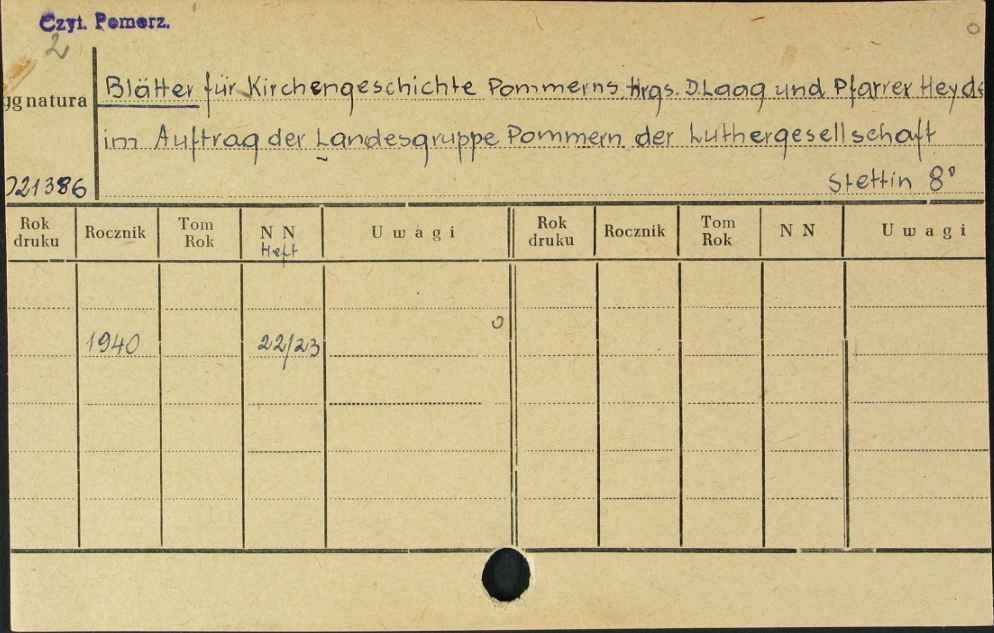 Czyt. Pomorz.
2
ygnatura
Blätter für Kirchengeschichte Pommerns. Hrgs. D. Laag und Pfarrer Heyd
im Auftrag der Landesgruppe Pommern der Luthergesellschaft
021386
Stettin 8°
Rok druku Rocznik Tom Rok N N Uwagi Rok druku Rocznik Tom Rok N N Uwagi
Heft
1940 22/23